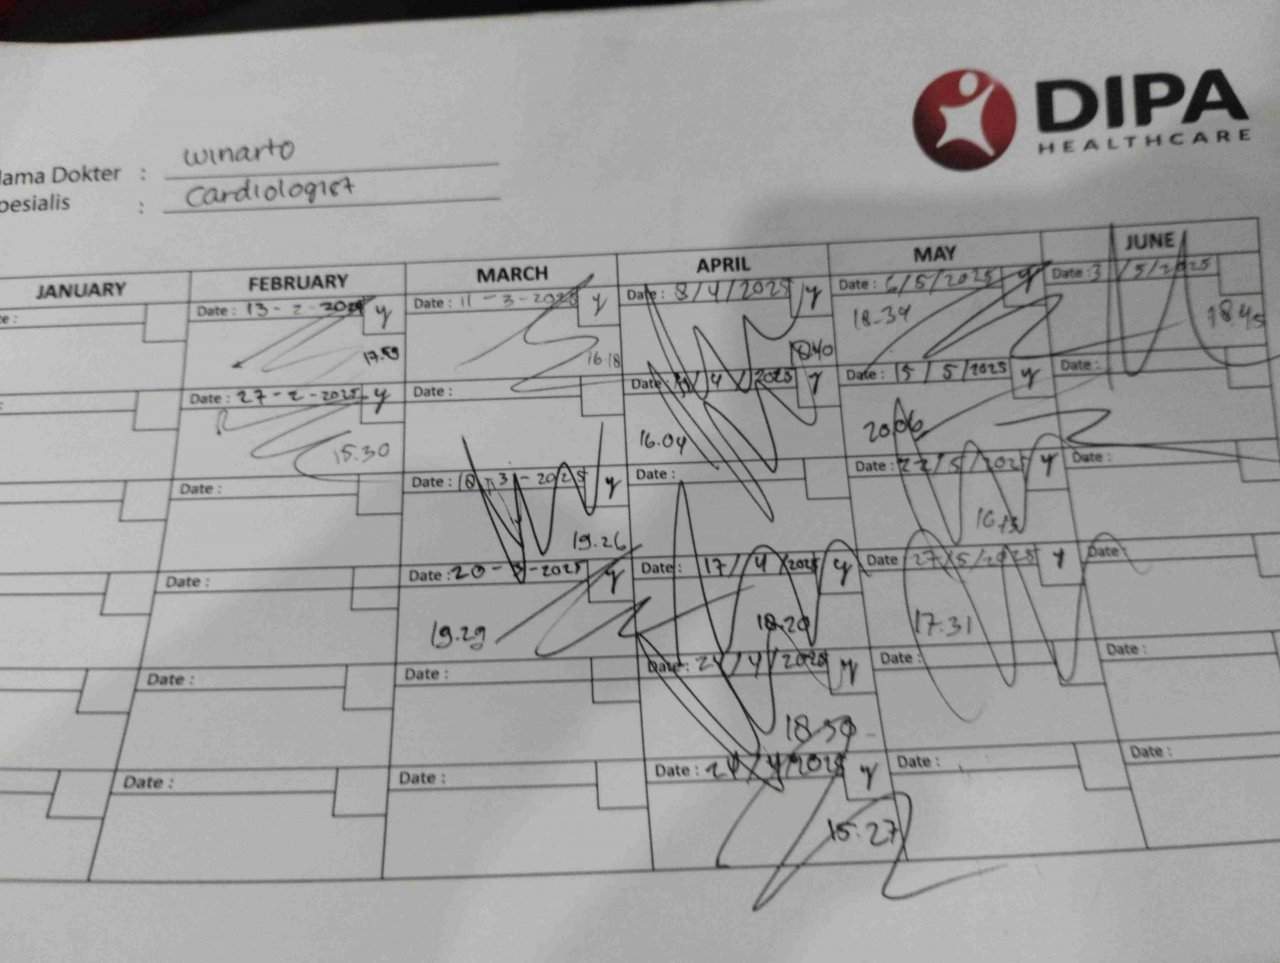 DIPA
HEALTHCARE
ama Dokter : Winarto
pesialis : Cardiologist
JANUARY FEBRUARY MARCH APRIL MAY JUNE
Date : 13-2-2025 y Date : 11-3-2025 y Date : 8/4/2025 y Date : 6/5/2025 y Date : 3/5/2025
17.59 16.18 18.34 18.45
Date : 27-2-2025 y Date : Date : /4/2025 y Date : 15/5/2025 y Date :
15.30 16.04 20.06
Date : Date : 18-3-2025 y Date : Date : 22/5/2025 y Date :
19.26
Date : Date : 20-3-2025 y Date : 17/4/2025 y Date : 27/5/2025 y Date :
19.29 18.20 17.31
Date : Date : Date : 24/4/2025 y Date : Date :
18.50
Date : Date : Date : /4/2025 y Date : Date :
15.27